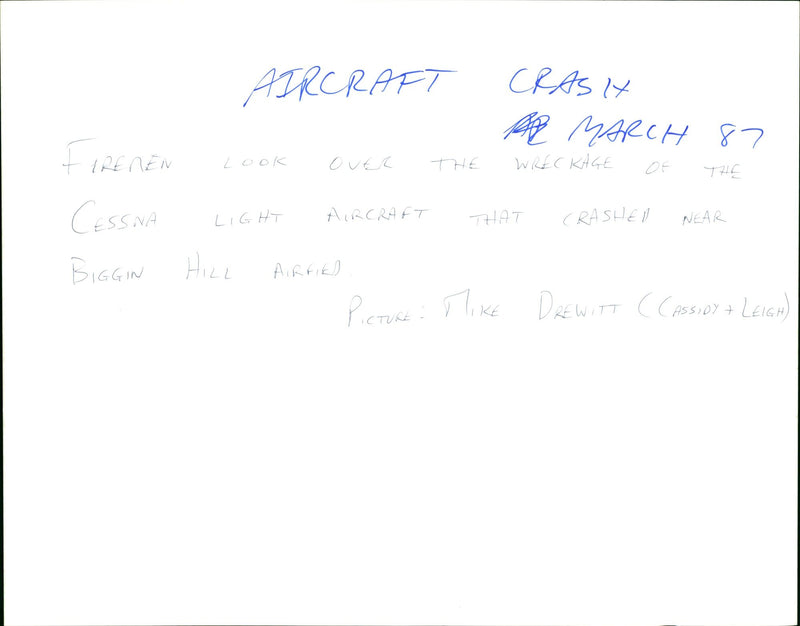 AIRCRAFT CRASH
MARCH 87
FIREMEN LOOK OVER THE WRECKAGE OF THE
CESSNA LIGHT AIRCRAFT THAT CRASHED NEAR
BIGGIN HILL AIRFIED.
PICTURE: MIKE DREWITT (CASSIDY + LEIGH)